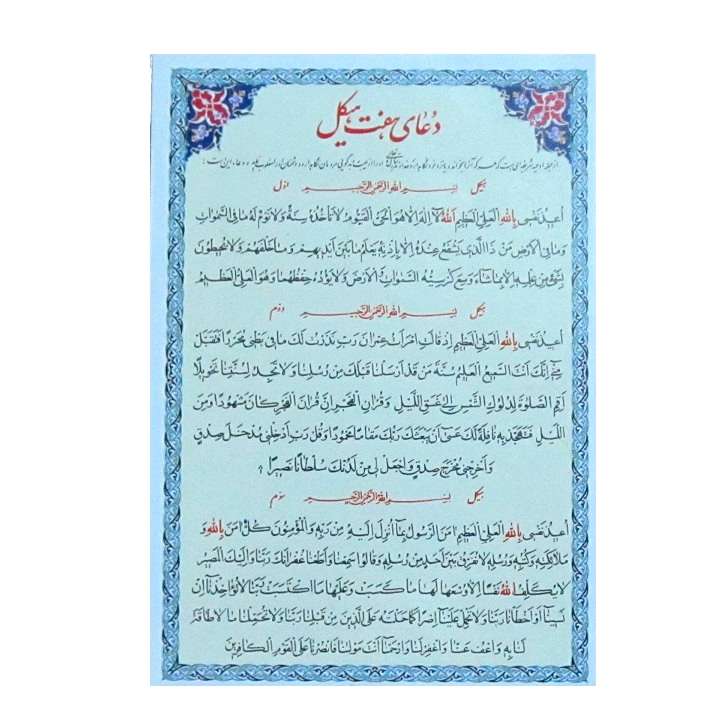 دعای هفت هیکل
هیکل بسم الله الرحمن الرحیم اول
اعیذ نفسی بالله العلی العظیم الله لا اله الا هو الحی القیوم لا تاخذه سنة ولا نوم له ما فی السموات
وما فی الارض من ذا الذی یشفع عنده الا باذنه یعلم ما بین ایدیهم وما خلفهم ولا یحیطون
بشیء من علمه الا بما شاء وسع کرسیه السموات والارض ولا یؤده حفظهما وهو العلی العظیم
هیکل بسم الله الرحمن الرحیم دوم
اعیذ نفسی بالله العلی العظیم اذ قالت امرات عمران رب نذرت لک ما فی بطنی محررا فتقبل
منی انک انت السمیع العلیم سنة من قد ارسلنا قبلک من رسلنا ولا تجد لسنتنا تحویلا
اقم الصلوة لدلوک الشمس الی غسق اللیل وقران الفجر ان قران الفجر کان مشهودا ومن
اللیل فتهجد به نافلة لک عسی ان یبعثک ربک مقاما محمودا وقل رب ادخلنی مدخل صدق
واخرجنی مخرج صدق واجعل لی من لدنک سلطانا نصیرا
هیکل بسم الله الرحمن الرحیم سوم
اعیذ نفسی بالله العلی العظیم امن الرسول بما انزل الیه من ربه والمؤمنون کل امن بالله و
ملائکته وکتبه ورسله لا نفرق بین احد من رسله وقالوا سمعنا واطعنا غفرانک ربنا والیک المصیر
لا یکلف الله نفسا الا وسعها لها ما کسبت وعلیها ما اکتسبت ربنا لا تؤاخذنا ان
نسینا او اخطانا ربنا ولا تحمل علینا اصرا کما حملته علی الذین من قبلنا ربنا ولا تحملنا ما لا طاقة
لنا به واعف عنا واغفر لنا وارحمنا انت مولینا فانصرنا علی القوم الکافرین